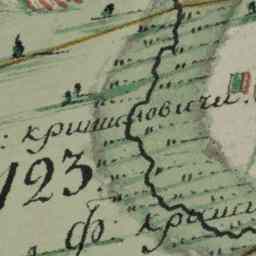 : кришановичи.
123.
ф. криш